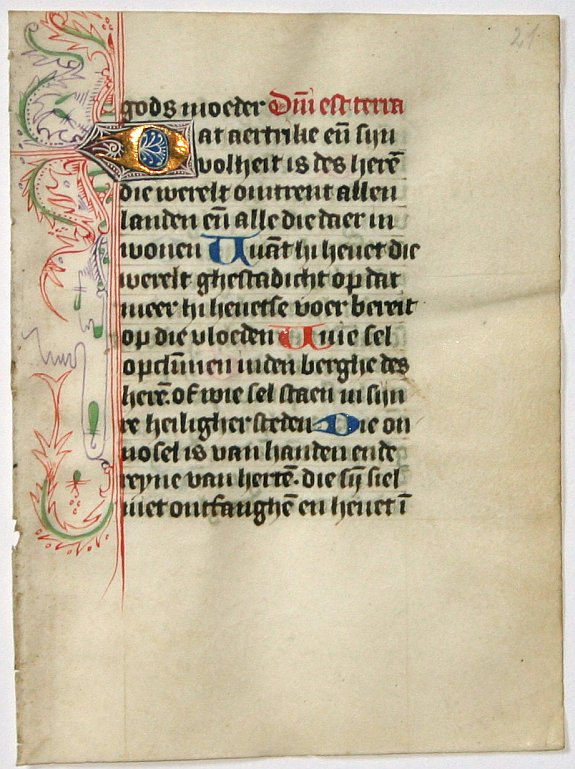 21
gods moeder Dñi est terra
Dat aertrike eñ sijn
volheit is des herē
die werelt omtrent allen
landen eñ alle die daer in
wonen Wāt hi hevet die
werelt ghestadicht op dat
meer hi hevetse voer bereit
op die vloeden Wie sel
opclīmen inden berghe des
herē. of wie sel staen in sijn
re heiligher steden Die on
nosel is van handen ende
reyne van hertē. die sij siel
niet ontfanghē en hevet ī